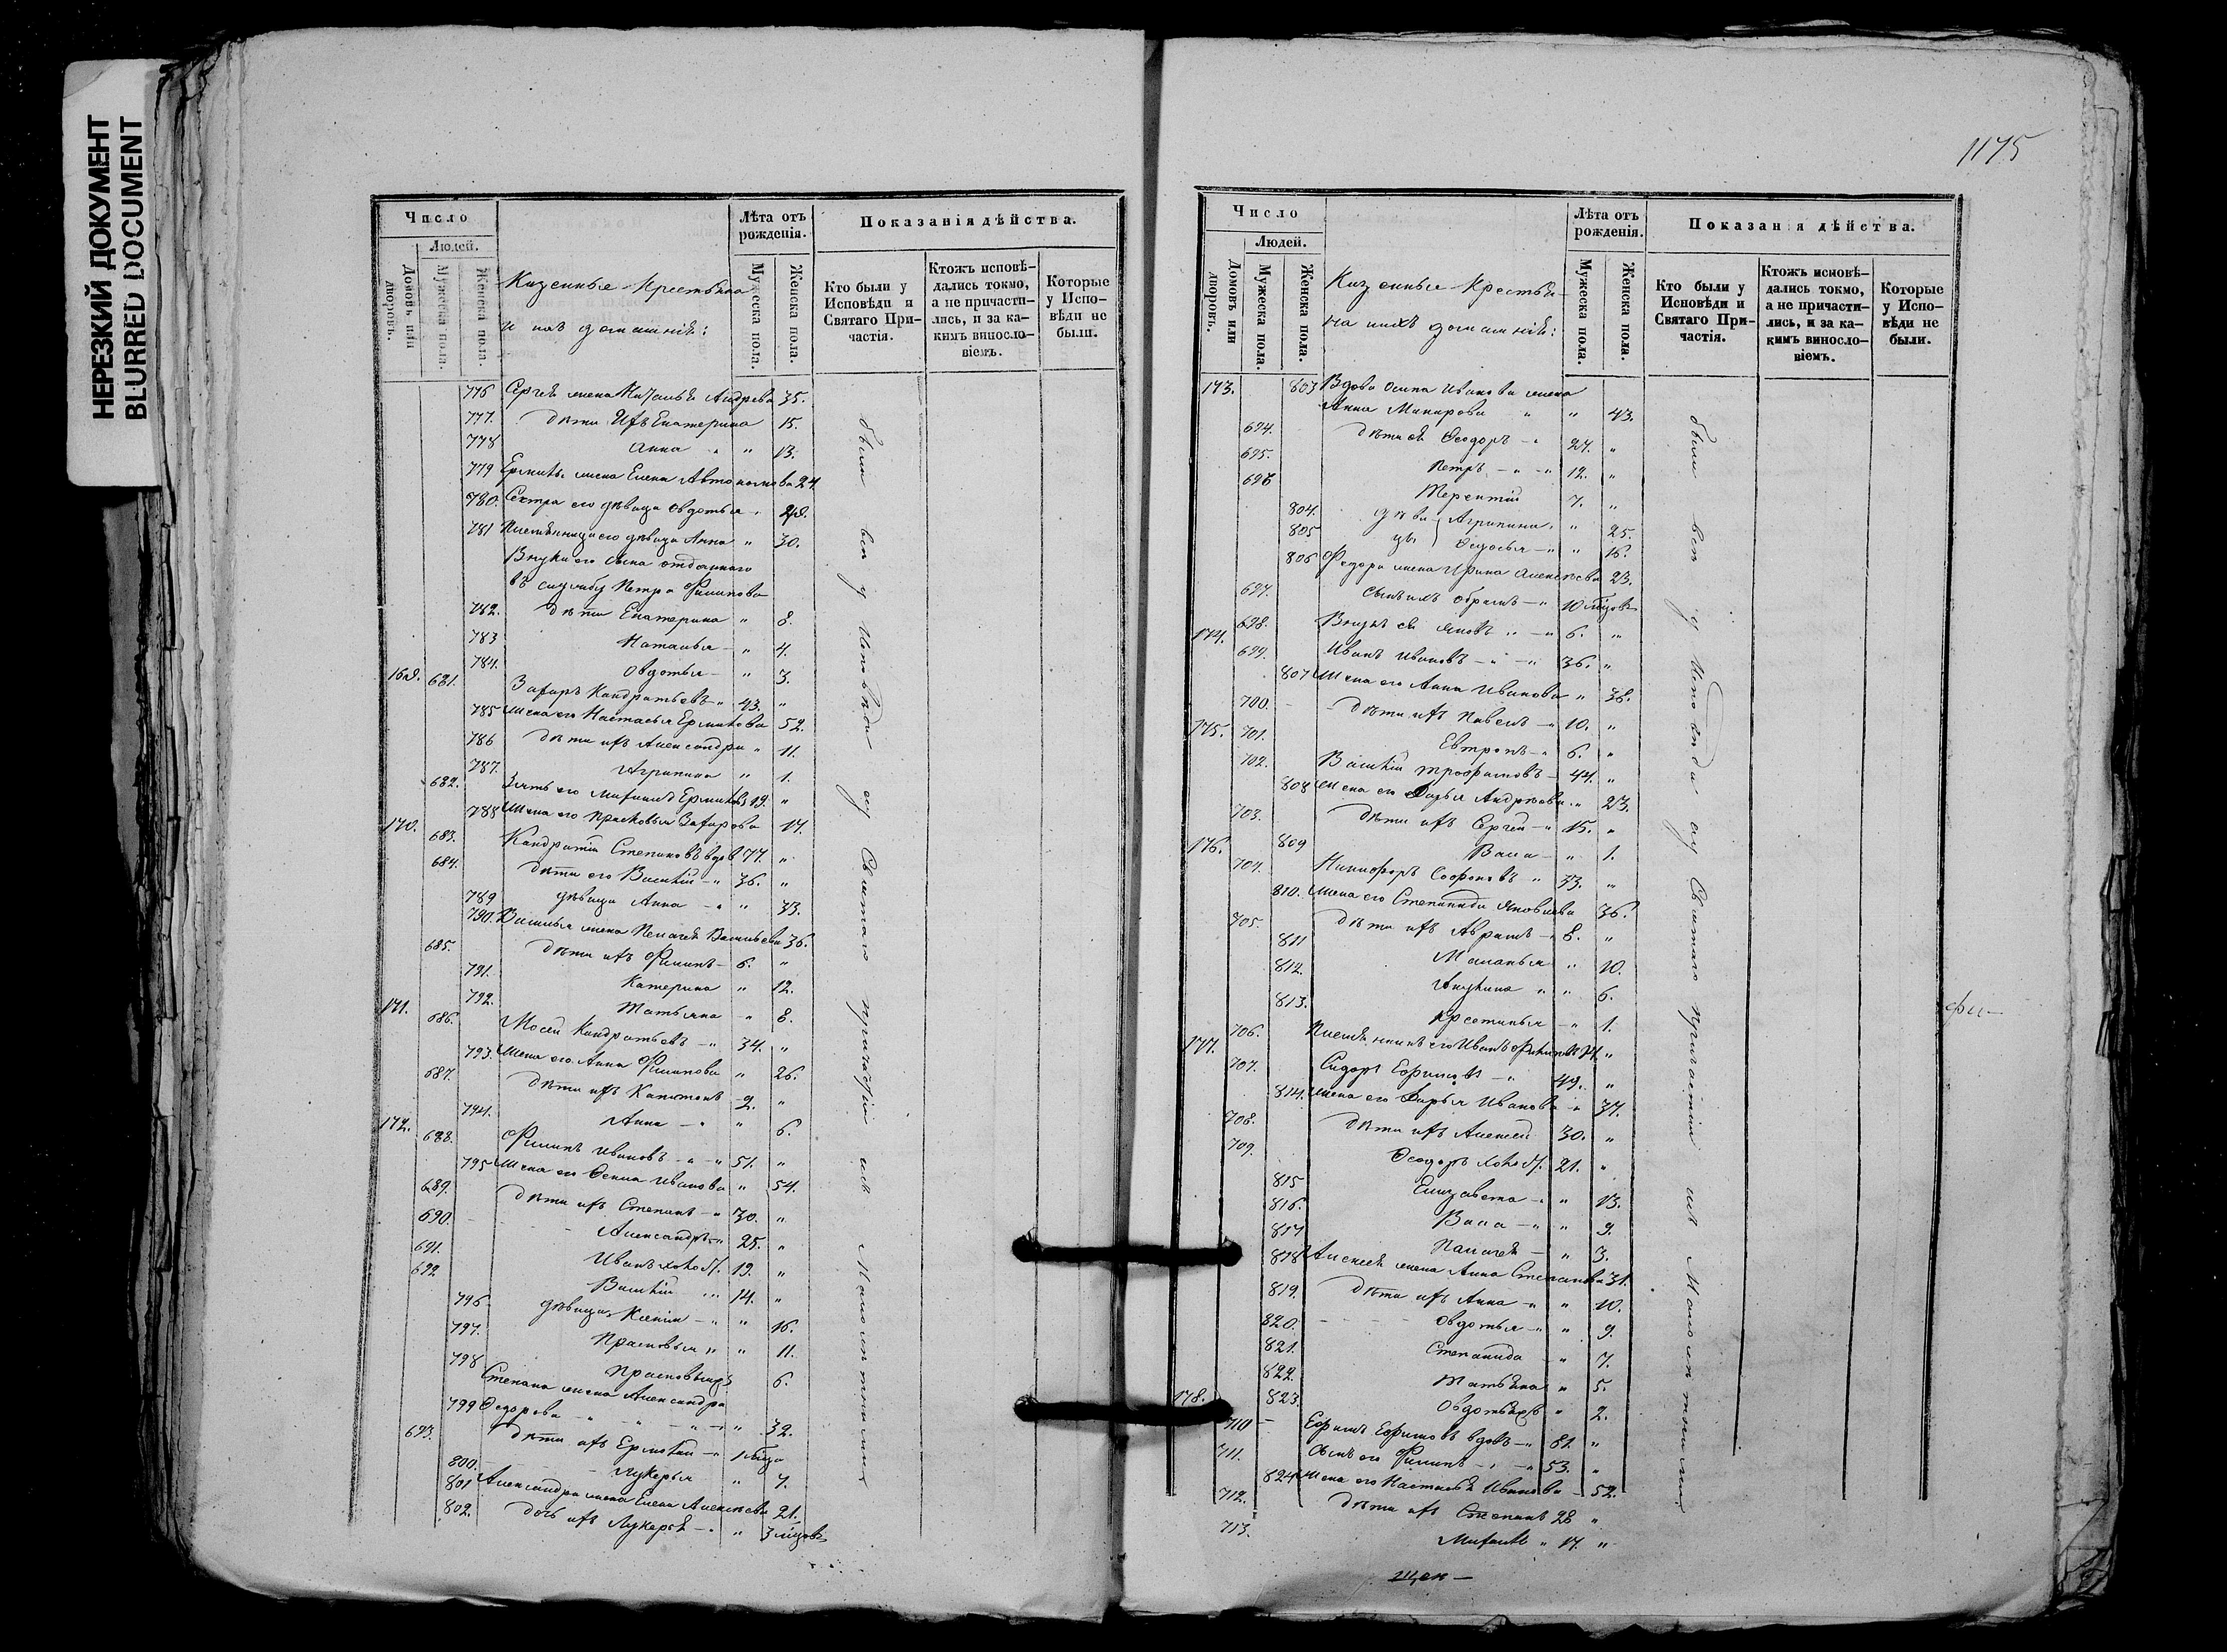 НЕРЕЗКИЙ ДОКУМЕНТ
BLURRED DOCUMENT
Число
Людей.
Домовъ или дворовъ.
Мужеска пола.
Женска пола.
Казенные Крестьяна
и ихъ домашніе:
Лѣта отъ рожденія.
Мужеска пола.
Женска пола.
Показанія дѣйства.
Кто были у Исповѣди и Святаго Причастія.
Ктожъ исповѣдались токмо, а не причастились, и за какимъ винословіемъ.
Которые у Исповѣди не были.
776 Сергея жена Наталья Андрева 35.
777. дѣти ихъ Екатерина 15.
778 Анна " 13.
779 Ермила жена Елена Автономова 24.
780. Сестра его дѣвица Овдотья "
781 Племянница его дѣвица Анна " 30.
Внуки его сына отданнаго
въ службу Петра Филипова
782. дѣти Екатерина " 8.
783 Наталья " 4.
784. Овдотья " 3.
169. 681. Захаръ Кондратьевъ 43. "
785 жена его Настасья Ермилова 52.
786 дѣти ихъ Александра " 11.
787. Агрипина " 1.
682. Зять его Михаилъ Ермиловъ 19. "
788 жена его Прасковья Захарова 17.
170. 683. Кондратій Степановъ вдов 77. "
684. дѣти его Василій 36. "
789 дѣвица Анна " 33.
790. Василья жена Пелагея Васильева 36.
685. дѣти ихъ Филипъ 6. "
791. Катерина " 12.
792. Татьяна " 8.
171. 686. Мосей Кондратьевъ 34. "
793. жена его Анна Филипова " 26.
687. дѣти ихъ Капитонъ 2. "
794. Анна " 6.
172. 688. Филипъ Ивановъ 51. "
795 жена его Ѳекла Иванова " 54.
689. дѣти ихъ Степанъ 30. "
690. Александръ 25. "
691. Иванъ холост. 19. "
692 Василій 14. "
796 дѣвица Ксенія " 16.
797. Прасковья " 11.
798 Прасковья 6.
Степана жена Александра
799 Ѳедорова " 32.
693. дѣти ихъ Ермолай
800. Лукерья " 7.
801 Александра жена Елена Алексѣева 21.
802. дочь ихъ Лукерья "
были вси у Исповѣди и у Святаго причастія и съ Малолѣтными
1175
Число
Людей.
Домовъ или дворовъ.
Мужеска пола.
Женска пола.
Казенные Крестья-
на ихъ домашніе:
Лѣта отъ рожденія.
Мужеска пола.
Женска пола.
Показанія дѣйства.
Кто были у Исповѣди и Святаго Причастія.
Ктожъ исповѣдались токмо, а не причастились, и за какимъ винословіемъ.
Которые у Исповѣди не были.
173. 803 Вдова Осипа Иванова жена
Анна Макарова " 43.
694. дѣти ея Ѳеодоръ 24. "
695. Петръ 12. "
696 Терентій 7. "
804. дѣви Агрипина " 25.
805 цы Ѳедосья " 16.
806 Федора жена Ирина Алексѣева 23.
697. сынъ ихъ Абрамъ
698. Внукъ ея Яковъ 6. "
174. 699. Иванъ Ивановъ 36. "
807 жена его Анна Иванова " 38.
700. дѣти ихъ Павелъ 10. "
701. Евтропъ 6. "
175. 702. Василій Трофимовъ 44. "
808 жена его Дарья Андрѣева " 23.
703. дѣти ихъ Сергей 15. "
809 Васа " 1.
176. 704. Никифоръ Софоновъ 33. "
810. жена его Степанида Яковлева 36.
705. дѣти ихъ Абрамъ 8. "
811 Маланья " 10.
812. Акулина " 6.
813. Хрестинья " 1.
706. Племянникъ его Иванъ "
177. 707. Сидоръ Ефимовъ 49. "
814. жена его Дарья Иванова 37.
708. дѣти ихъ Алексей 30. "
709. Ѳеодоръ холост. 21. "
815 Елизавета " 13.
816. Васа " 9.
817 Палагея " 3.
818 Алексея жена Анна Степанова 31.
819. дѣти ихъ Анна " 10.
820. Овдотья " 9.
821. Степанида " 7.
822. Татьяна " 5.
823. Овдотья " 2.
178. 710 Ефимъ Ефимовъ вдовъ 81. "
711. Сынъ его Филипъ 53. "
824 жена его Настасья Иванова 52.
712. дѣти ихъ Степанъ 28 "
713. Михаилъ 17. "
были вси у Исповѣди и у Святаго причастія и съ Малолѣтными
фи-